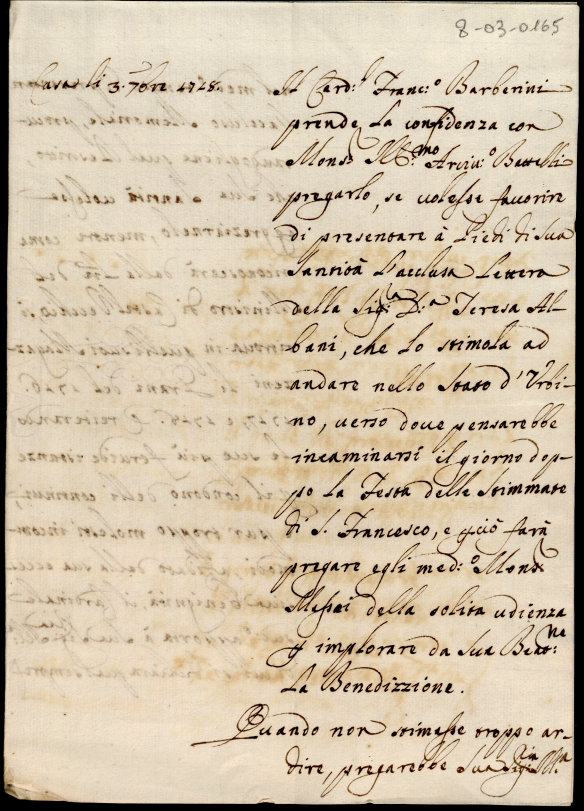 8-03-0165
Casa li 3. 7bre 1728.
Il Card.l Franc.o Barberini
prende la confidenza con
Mons.r Ill.mo Arciv.o Battelli
pregarlo, se volesse favorire
di presentare à Piedi di Sua
Santità l'acclusa Lettera
della Sig.ra D.a Teresa Al-
bani, che lo stimola ad
andare nello Stato d'Urbi-
no, verso dove pensarebbe
incaminarsi il giorno dop-
po la Festa delle Stimmate
di S. Francesco, e perciò farà
pregare egli med.o Mons.r
della solita udienza
per implorare da Sua Beat.ne
la Benedizzione.
Quando non stimasse troppo ar-
dire, pregarebbe Sua Sig.ria Ill.ma